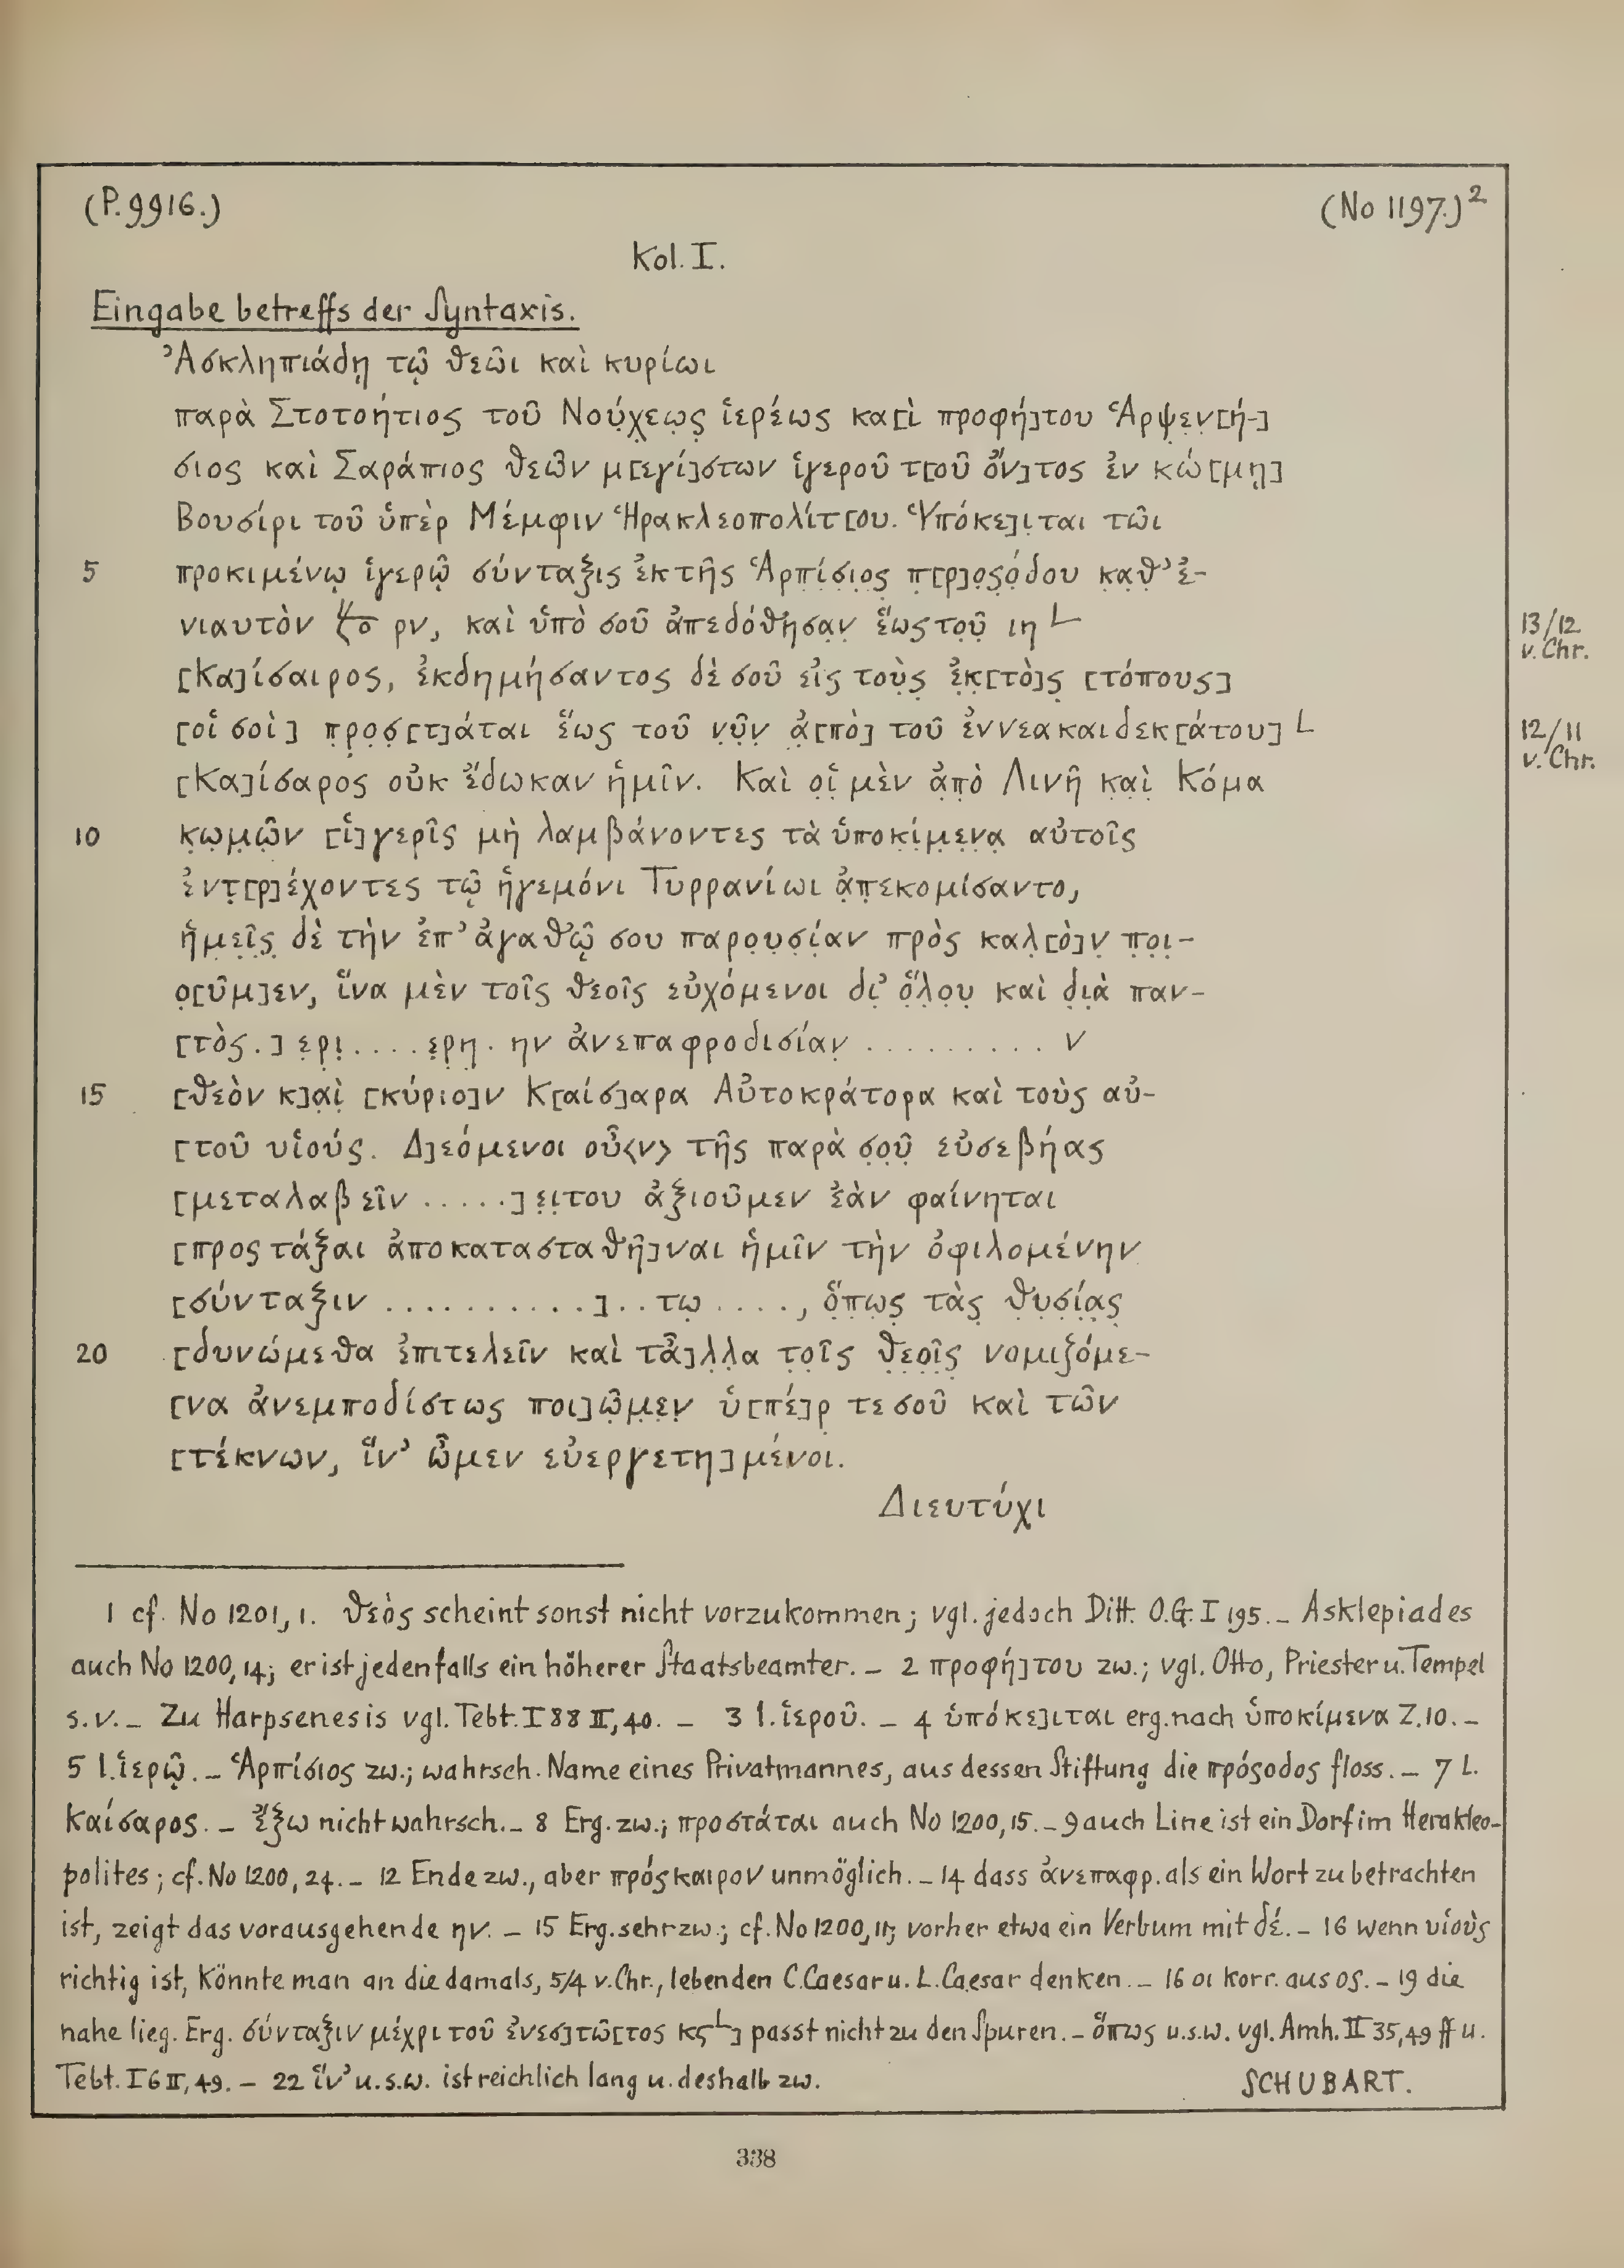 (P. 9916.) (No 1197.)²
Kol. I.
Eingabe betreffs der Syntaxis.
Ἀσκληπιάδῃ τῷ θεῶι καὶ κυρίωι
παρὰ Στοτοήτιος τοῦ Νού̣χεω̣ς̣ ἱερέως κα[ὶ προφή]του Ἁρψ̣ε̣ν̣[ή-]
σιος καὶ Σαράπιος θεῶν μ[εγί]στων ἱγεροῦ τ[οῦ ὄν]τος ἐν κώ[μῃ]
Βουσίρι τοῦ ὑπὲρ Μέμφιν Ἡρακλεοπολίτ[ου. Ὑπόκε]ι̣ται τῶι
5 προκιμένῳ ἱγερῷ σύνταξις ἐκ τῆς Ἁρπ̣ί̣σ̣ι̣ο̣ς̣ π̣[ρ]ο̣σ̣ό̣δου κ̣α̣θ̣’ ἐ̣-
νιαυτὸν ρν, καὶ ὑπὸ σοῦ ἀπεδόθ̣ησα̣ν̣ ἕ̣ω̣ς το̣ῦ̣ ιη L 13/12 v. Chr.
[Κα]ίσαιρος, ἐκδημήσαντος δὲ σοῦ εἰς τοὺς̣ ἐ̣κ̣[τὸ]ς̣ [τόπους]
[οἵ σοὶ] π̣ρ̣ο̣σ̣[τ]άται ἕως τοῦ ν̣ῦ̣ν̣ ἀ̣[πὸ] τοῦ ἐννεακαιδεκ[άτου] L 12/11 v. Chr.
[Κα]ίσαρος οὐκ ἔδωκαν ἡμῖν. Καὶ ο̣ἱ̣ μὲν ἀ̣π̣ὸ Λινῆ κ̣α̣ὶ̣ Κόμα
10 κ̣ω̣μ̣ῶ̣ν [ἱ]γερῖς μὴ λαμβάνοντες τὰ ὑποκ̣ί̣μ̣ε̣ν̣α̣ αὐτοῖς
ἐντ̣[ρ]έχοντες τῷ ἡγεμόνι Τυρρανίωι ἀ̣π̣εκομίσαντο,
ἡ̣μ̣ε̣ῖ̣ς̣ δὲ τὴν ἐπ’ ἀγαθῷ σου παρο̣υ̣σ̣ί̣αν πρὸς καλ̣[ὸ]ν̣ π̣ο̣ι̣-
ο̣[ῦμ]εν, ἵνα μὲν τοῖς θεοῖς εὐχόμενοι δι̣’ ὅ̣λ̣ο̣υ̣ καὶ δ̣ι̣ὰ̣ παν-
[τὸς.] ε̣ρ̣ι̣ . . . . ε̣ρ̣η̣ . ην ἀνεπαφροδισίαν̣ . . . . . . . . . ν
15 [θεὸν κ]α̣ὶ̣ [κύριο]ν Κ[αίσ]αρα Αὐτοκράτορα καὶ τοὺς αὐ-
[τοῦ υἱούς. Δ]εόμενοι οὖ<ν> τῆς παρὰ σ̣ο̣ῦ̣ εὐσεβήας
[μεταλαβεῖν . . . . .]ε̣ι̣του ἀξιοῦμεν ἐὰν φαίνηται
[προςτάξαι ἀποκατασταθῆ]ναι ἡμῖν τὴν ὀφιλομένην
[σύνταξιν . . . . . . . . . . .] . . τω̣ . . . . , ὅ̣π̣ω̣ς̣ τὰς̣ θ̣υ̣σ̣ί̣α̣ς̣
20 [δυνώμεθα ἐπιτελεῖν καὶ τἆ]λ̣λ̣α τ̣ο̣ῖ̣ς̣ θ̣ε̣ο̣ῖ̣ς̣ νομιζόμε-
[να ἀνεμποδίστως ποι]ῶ̣μ̣ε̣ν̣ ὑ[πέ]ρ̣ τε σοῦ καὶ τῶν
[τέκνων, ἵν’ ὦμεν εὐεργετη]μένοι.
Διευτύχι
1 cf. No 1201, 1. θεὸς scheint sonst nicht vorzukommen; vgl. jedoch Ditt. O.G. I 195. – Asklepiades
auch No 1200, 14; er ist jedenfalls ein höherer Staatsbeamter. – 2 προφή]του zw.; vgl. Otto, Priester u. Tempel
s.v. – Zu Harpsenesis vgl. Tebt. I 88 II, 40. – 3 l. ἱεροῦ. – 4 ὑπόκε]ιται erg. nach ὑποκίμενα Z. 10. –
5 l. ἱερῷ. – Ἁρπίσιος zw.; wahrsch. Name eines Privatmannes, aus dessen Stiftung die πρόςοδος floss. – 7 L.
Καίσαρος. – ἔξω nicht wahrsch. – 8 Erg. zw.; προστάται auch No 1200, 15. – 9 auch Line ist ein Dorf im Herakleo-
polites; cf. No 1200, 24. – 12 Ende zw., aber πρόςκαιρον unmöglich. – 14 dass ἀνεπαφρ. als ein Wort zu betrachten
ist, zeigt das vorausgehende ην. – 15 Erg. sehr zw.; cf. No 1200, 11; vorher etwa ein Verbum mit δέ. – 16 wenn υἱοὺς
richtig ist, könnte man an die damals, 5/4 v. Chr., lebenden C. Caesar u. L. Caesar denken. – 16 οι korr. aus ος. – 19 die
nahe lieg. Erg. σύνταξιν μέχρι τοῦ ἐνεσ]τῶ[τος κς L] passt nicht zu den Spuren. – ὅπως u.s.w. vgl. Amh. II 35, 49 ff u.
Tebt. I 6 II, 49. – 22 ἵν’ u.s.w. ist reichlich lang u. deshalb zw. SCHUBART.
338